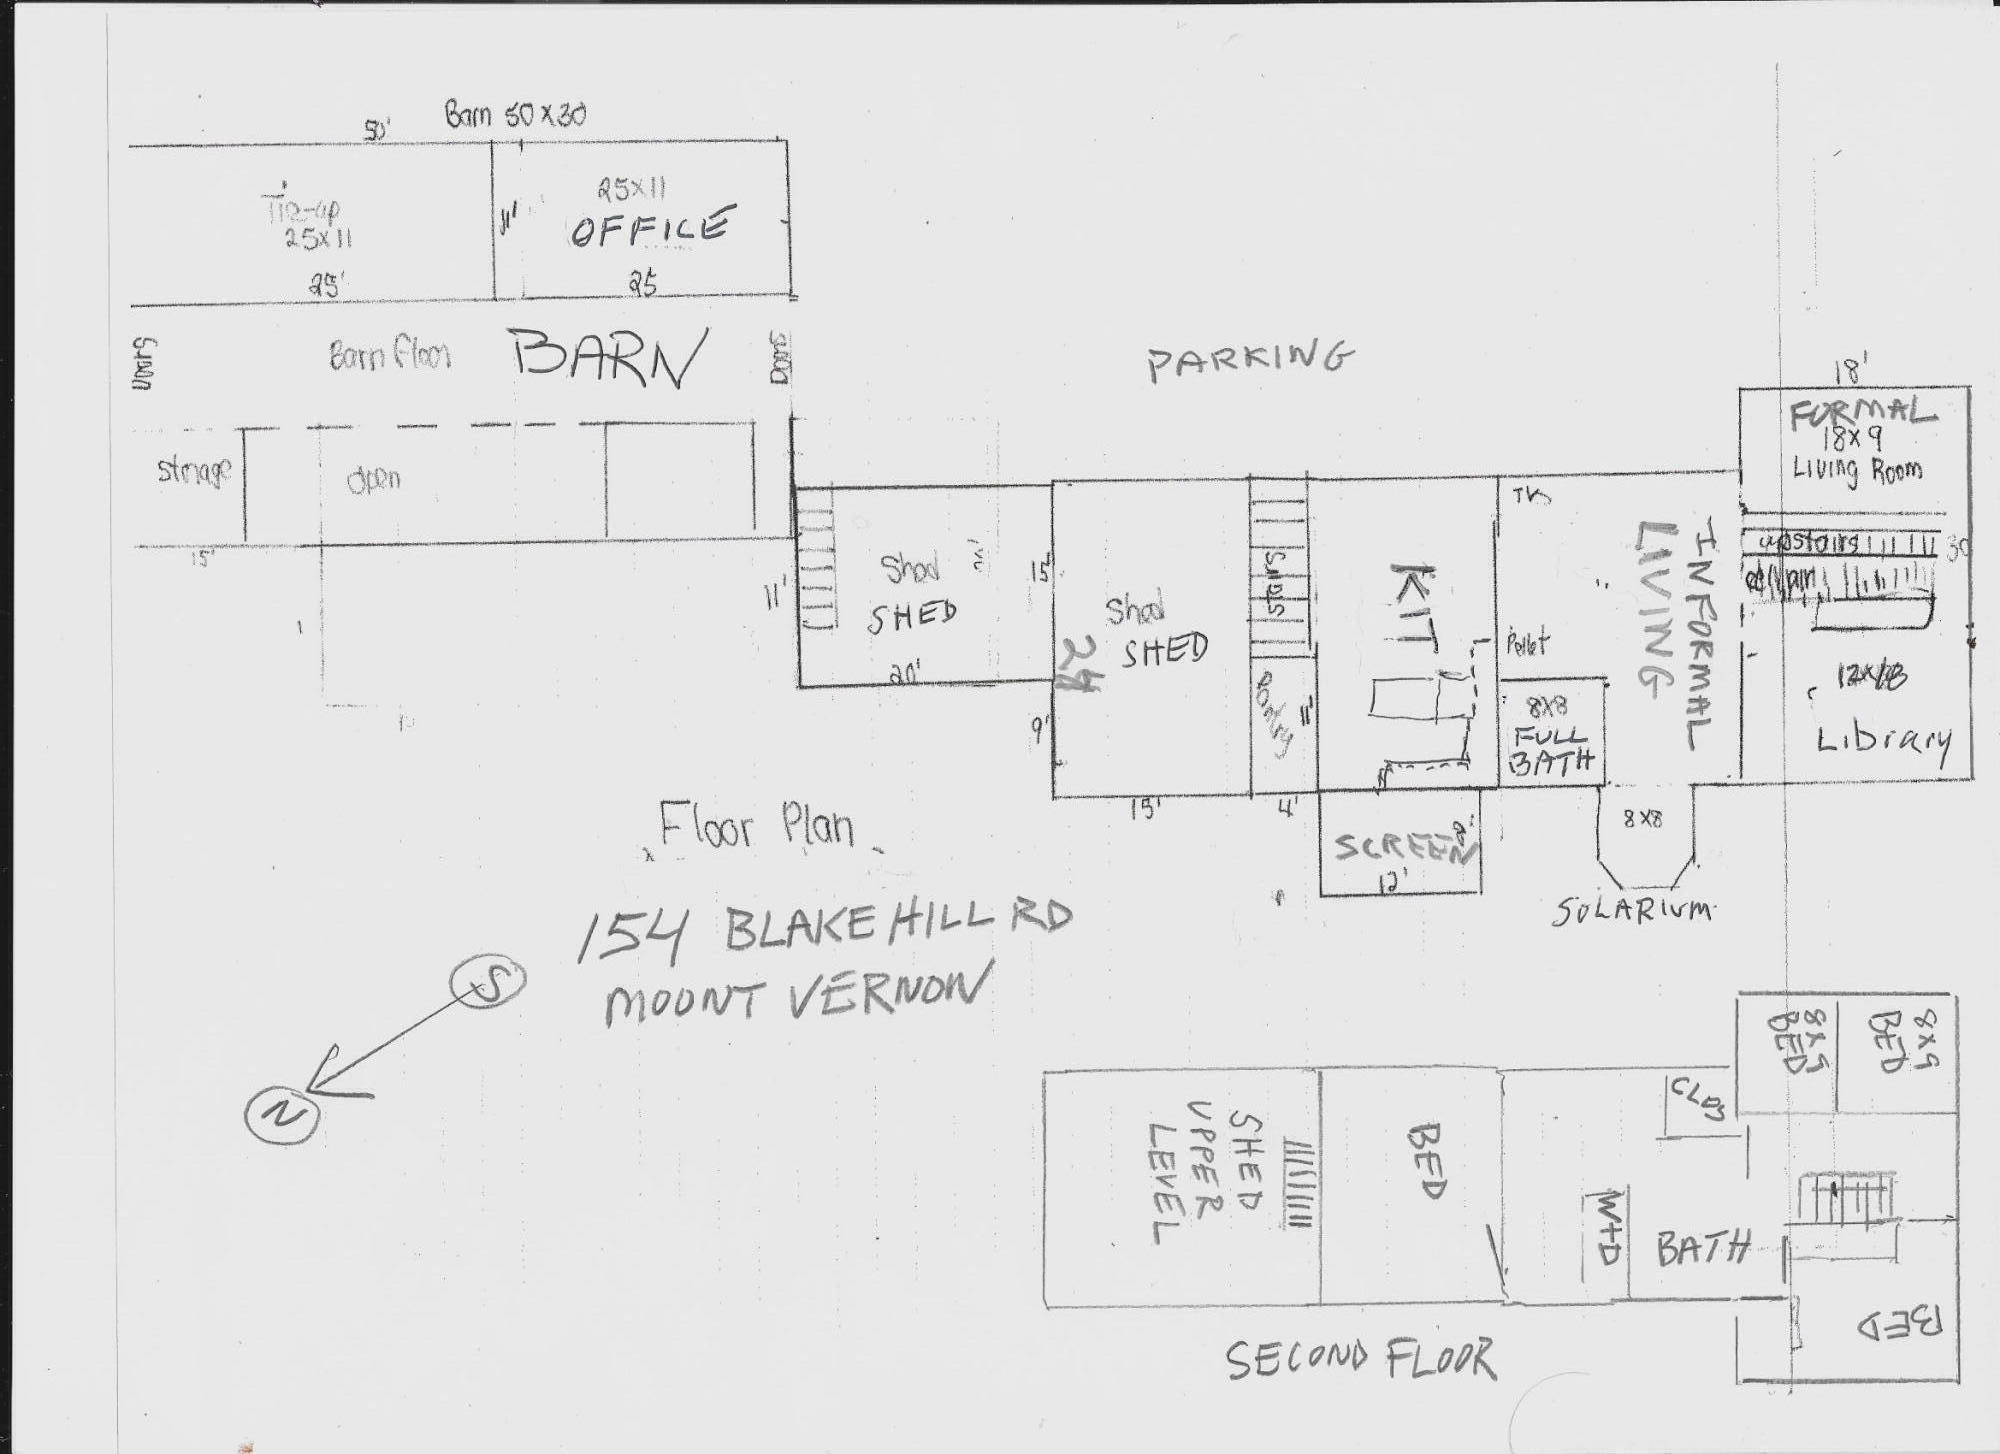 Barn 50 x 30
50'
Tie-up
25x11
25'
11'
25x11
OFFICE
25
Doors
Barn Floor
BARN
Doors
storage
open
15'
PARKING
11'
Shed
SHED
20'
15'
9'
Shed
SHED
24
15'
Stairs
Pantry
11'
4'
KIT
SCREEN
8'
12'
Pellet
8x8
FULL
BATH
INFORMAL
LIVING
8x8
SOLARIUM
18'
FORMAL
18x9
Living Room
upstairs
30
12x18
Library
Floor Plan
154 BLAKE HILL RD
MOUNT VERNON
S
N
SHED
UPPER
LEVEL
BED
CLOS
W+D
BATH
8x9
BED
8x9
BED
BED
SECOND FLOOR